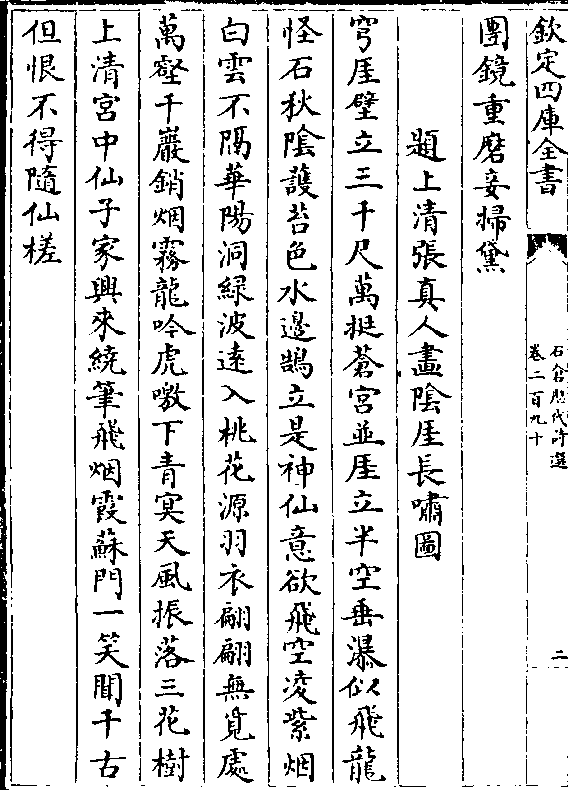 欽定四庫全書
石倉歷代詩選
卷二百九十
二
團鏡重磨妾掃黛
題上清張真人畫陰厓長嘯圖
穹厓壁立三千尺萬挺蒼宮並厓立半空垂瀑似飛龍
怪石秋陰護苔色水邊鵠立是神仙意欲飛空凌紫烟
白雲不隔華陽洞綠波逺入桃花源羽衣翩翩無覓處
萬壑千巖銷烟霧龍吟虎嗷下青冥天風振落三花樹
上清宮中仙子家興來繞筆飛烟霞蘇門一笑聞千古
但恨不得隨仙槎